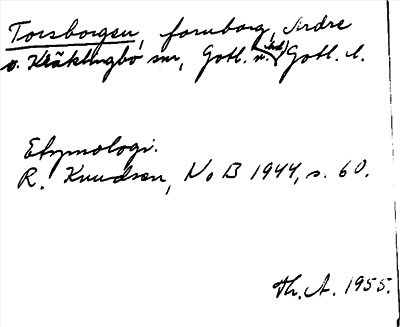 Torsborgen, fornborg, Ardre
o. Kräklingbo snr, Gotl. n. (sd) Gotl. l.
Etymologi.
R. Knudsen, NoB 1944, s. 60.
Th. A. 1955.